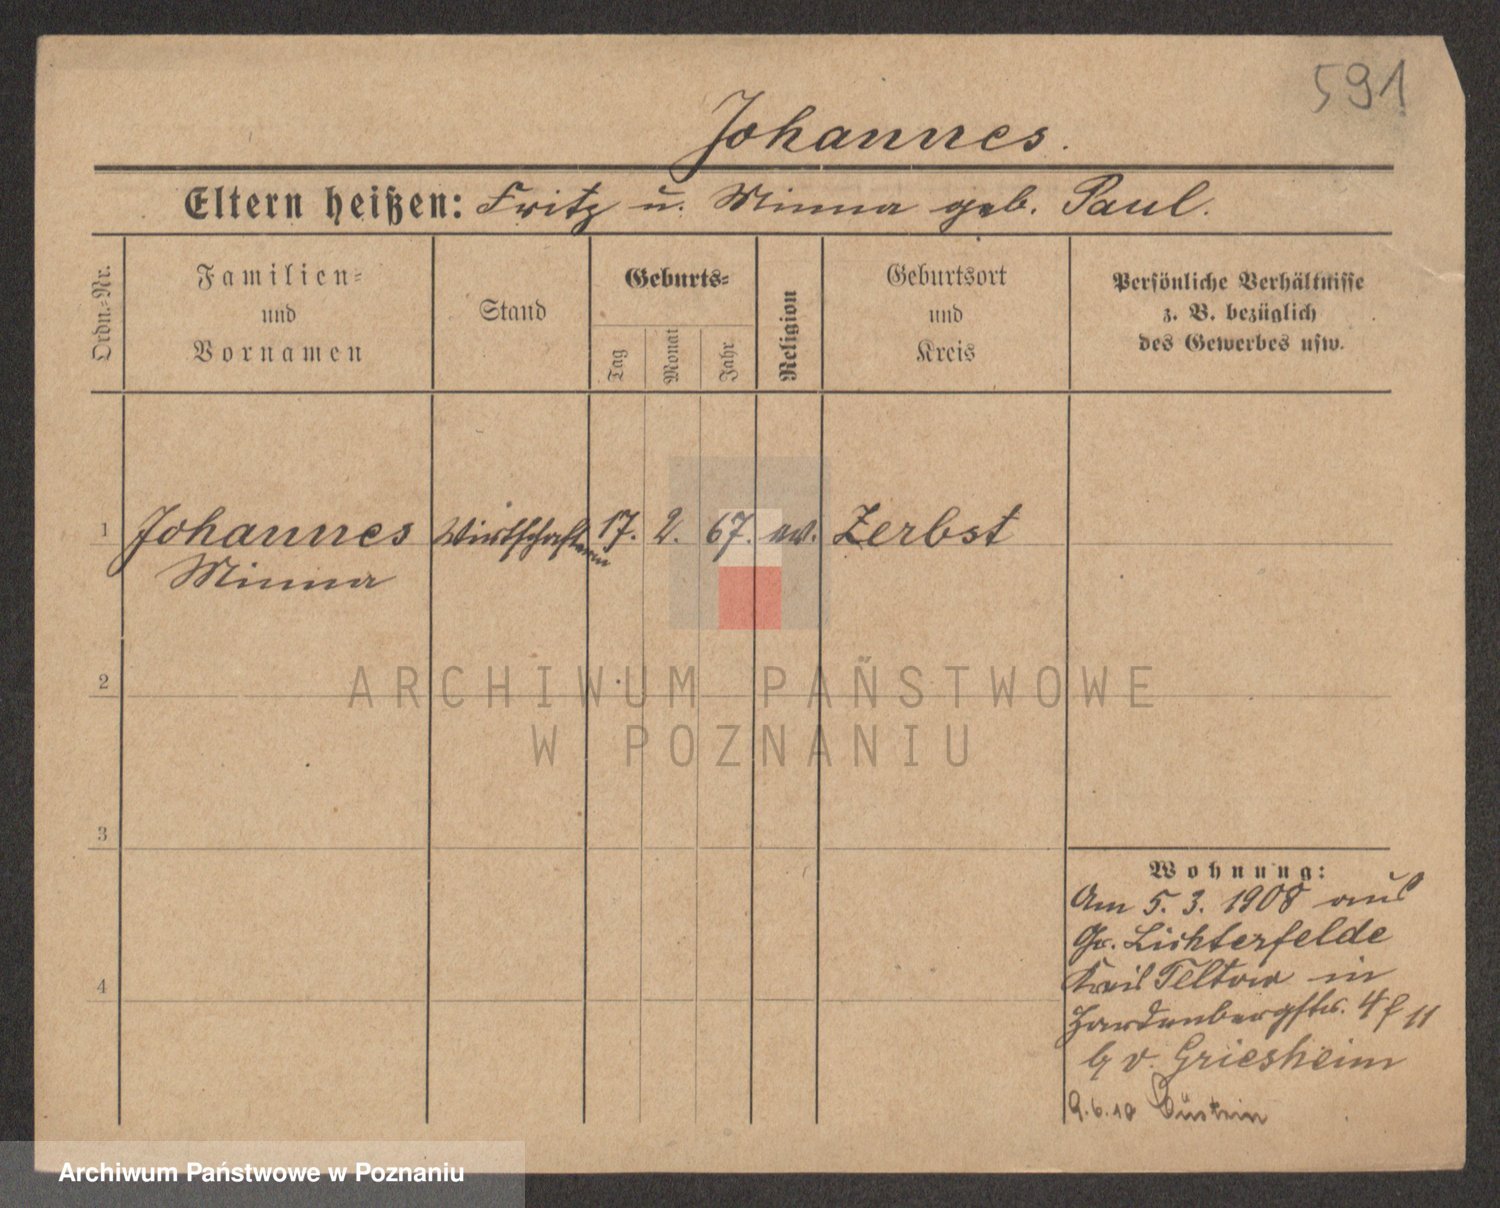 591
Johannes.
Eltern heißen: Fritz u. Minna geb. Paul.
Ordn.-Nr.
Familien-
und
Vornamen
Stand
Geburts-
Tag
Monat
Jahr
Religion
Geburtsort
und
Kreis
Persönliche Verhältnisse
z. B. bezüglich
des Gewerbes usw.
1 Johannes Wirtschafterin 17. 2. 67. ev. Zerbst
Minna
2
3
4
Wohnung:
Am 5. 3. 1908 aus
Gr. Lichterfelde
Kreis Teltow in
Hardenbergstr. 4 II
v. Griesheim
9.6.10
ARCHIWUM PAŃSTWOWE
W POZNANIU
Archiwum Państwowe w Poznaniu